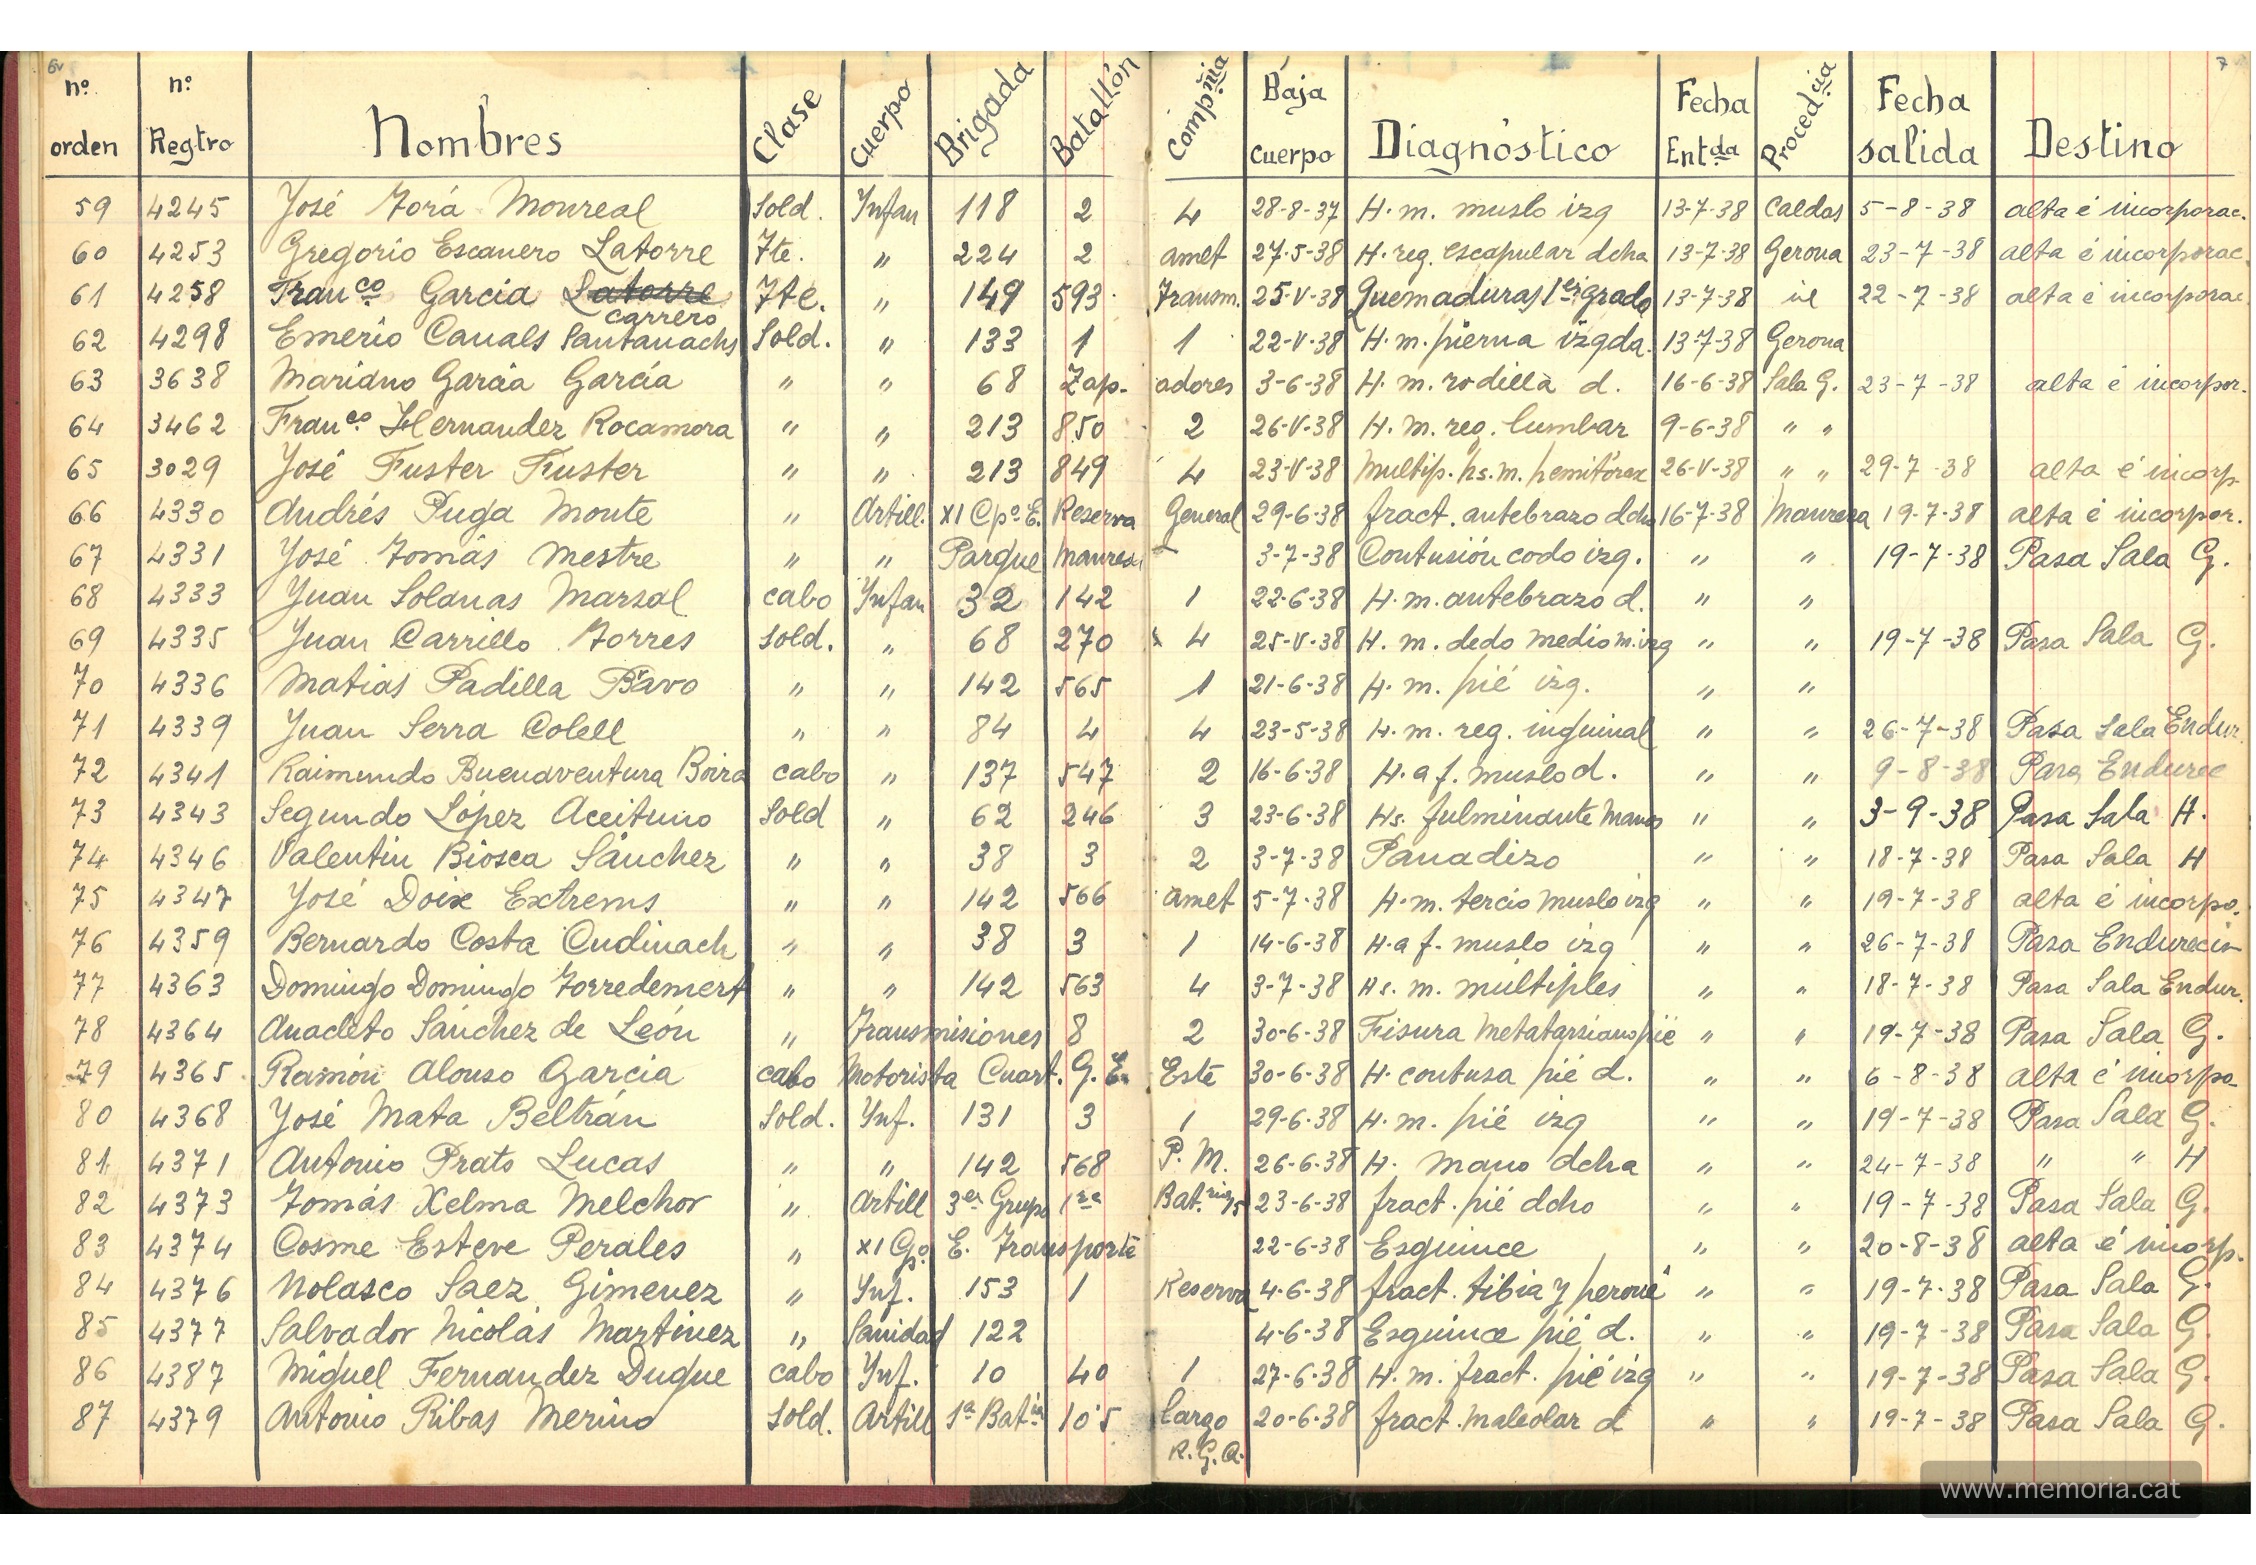 6v
7
nº orden nº Regtro Nombres Clase Cuerpo Brigada Batallón Compñia Baja cuerpo Diagnóstico Fecha Entda Procedcia Fecha salida Destino
59 4245 José Torá Monreal Sold. Ynfan 118 2 4 28-8-37 H. m. muslo izq 13-7-38 Caldas 5-8-38 alta é incorporac.
60 4253 Gregorio Escanero Latorre Tte. " 224 2 amet 27-5-38 H. reg. escapular dcha 13-7-38 Gerona 23-7-38 alta é incorporac.
61 4258 Franco Garcia Latorre Tte. " 149 593 Transm. 25-V-38 Quemaduras 1er grado 13-7-38 id 22-7-38 alta é incorporac
carrero
62 4298 Emerio Canals Santanachs Sold. " 133 1 1 22-V-38 H. m. pierna izqda. 13-7-38 Gerona
63 3638 Mariano Garcia García " " 68 Zap- adores 3-6-38 H. m. rodilla d. 16-6-38 Sala G. 23-7-38 alta é incorpor.
64 3462 Franco Hernandez Rocamora " " 213 850 2 26-V-38 H. m. reg. lumbar 9-6-38 " "
65 3029 José Fuster Fuster " " 213 849 4 23-V-38 Multip. hs. m. hemitórax 26-V-38 " " 29-7-38 alta é incorp
66 4330 Andrés Puga Monte " Artill. XI Cpo E. Reserva General 29-6-38 fract. antebrazo dcho 16-7-38 Manresa 19-7-38 alta é incorpor.
67 4331 José Tomás Mestre " " Parque Manresa - 3-7-38 Contusión codo izq. " " 19-7-38 Pasa Sala G.
68 4333 Juan Solanas Marsal cabo Ynfan 32 142 1 22-6-38 H. m. antebrazo d. " "
69 4335 Juan Carrillo Torres Sold. " 68 270 4 25-V-38 H. m. dedo medio m. izq " " 19-7-38 Pasa Sala G.
70 4336 Matias Padilla Bravo " " 142 565 1 21-6-38 H. m. pié izq. " "
71 4339 Juan Serra Colell " " 84 4 4 23-5-38 H. m. reg. inguinal " " 26-7-38 Pasa Sala Endur.
72 4341 Raimundo Buenaventura Boira cabo " 137 547 2 16-6-38 H. a f. muslo d. " " 9-8-38 Pasa Endurec
73 4343 Segundo López Aceituno Sold " 62 246 3 23-6-38 Hs. fulminante manos " " 3-9-38 Pasa Sala H.
74 4346 Valentin Biosca Sánchez " " 38 3 2 3-7-38 Panadizo " " 18-7-38 Pasa Sala H
75 4347 José Doix Extrems " " 142 566 amet 5-7-38 H. m. tercio muslo izq " " 19-7-38 alta é incorpo.
76 4359 Bernardo Costa Cudinach " " 38 3 1 14-6-38 H. a f. muslo izq " " 26-7-38 Pasa Endurecin
77 4363 Domingo Domingo Torredemert " " 142 563 4 3-7-38 Hs. m. múltiples " " 18-7-38 Pasa Sala Endur.
78 4364 Anacleto Sánchez de León " Transmisiones 8 2 30-6-38 Fisura metatarsiano pié " " 19-7-38 Pasa Sala G.
79 4365 Ramón Alonso Garcia cabo Motorista Cuart. G. E. Este 30-6-38 H. contusa pié d. " " 6-8-38 alta é incorpo
80 4368 José Mata Beltrán Sold. Ynf. 131 3 1 29-6-38 H. m. pié izq " " 19-7-38 Pasa Sala G.
81 4371 Antonio Prats Lucas " " 142 568 P. M. 26-6-38 H. mano dcha " " 24-7-38 " " H
82 4373 Tomás Xelma Melchor " Artill 3er Grupo 1ra Bat.ria 75 23-6-38 fract. pié dcho " " 19-7-38 Pasa Sala G.
83 4374 Cosme Esteve Perales " XI Gpo. E. Transporte 22-6-38 Esguince " " 20-8-38 alta é incorp.
84 4376 Nolasco Saez Gimenez " Ynf. 153 1 Reserva 4-6-38 fract. tibia y peroné " " 19-7-38 Pasa Sala G.
85 4377 Salvador Nicolás Martinez " Sanidad 122 4-6-38 Esguince pié d. " " 19-7-38 Pasa Sala G.
86 4387 Miguel Fernandez Duque cabo Ynf. 10 40 1 27-6-38 H. m. fract. pié izq " " 19-7-38 Pasa Sala G.
87 4379 Antonio Ribas Merino Sold. Artill 1a Batia 10'5 largo 20-6-38 fract. maleolar d " " 19-7-38 Pasa Sala G.
R. G. A.
www.memoria.cat